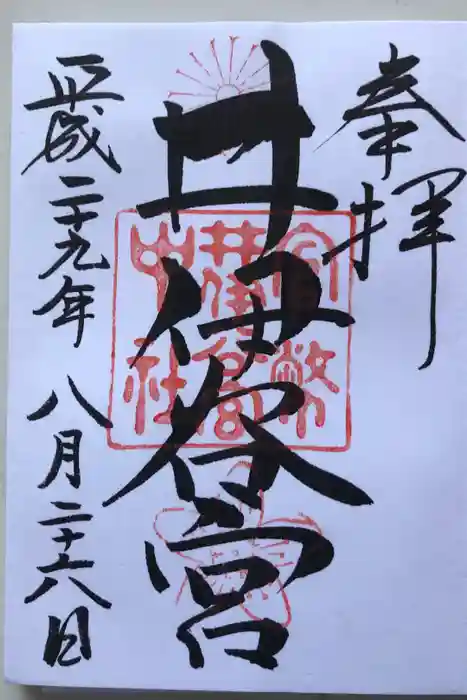 奉拝
井伊谷宮
官幣
井伊谷宮
中社
平成二十九年八月二十六日